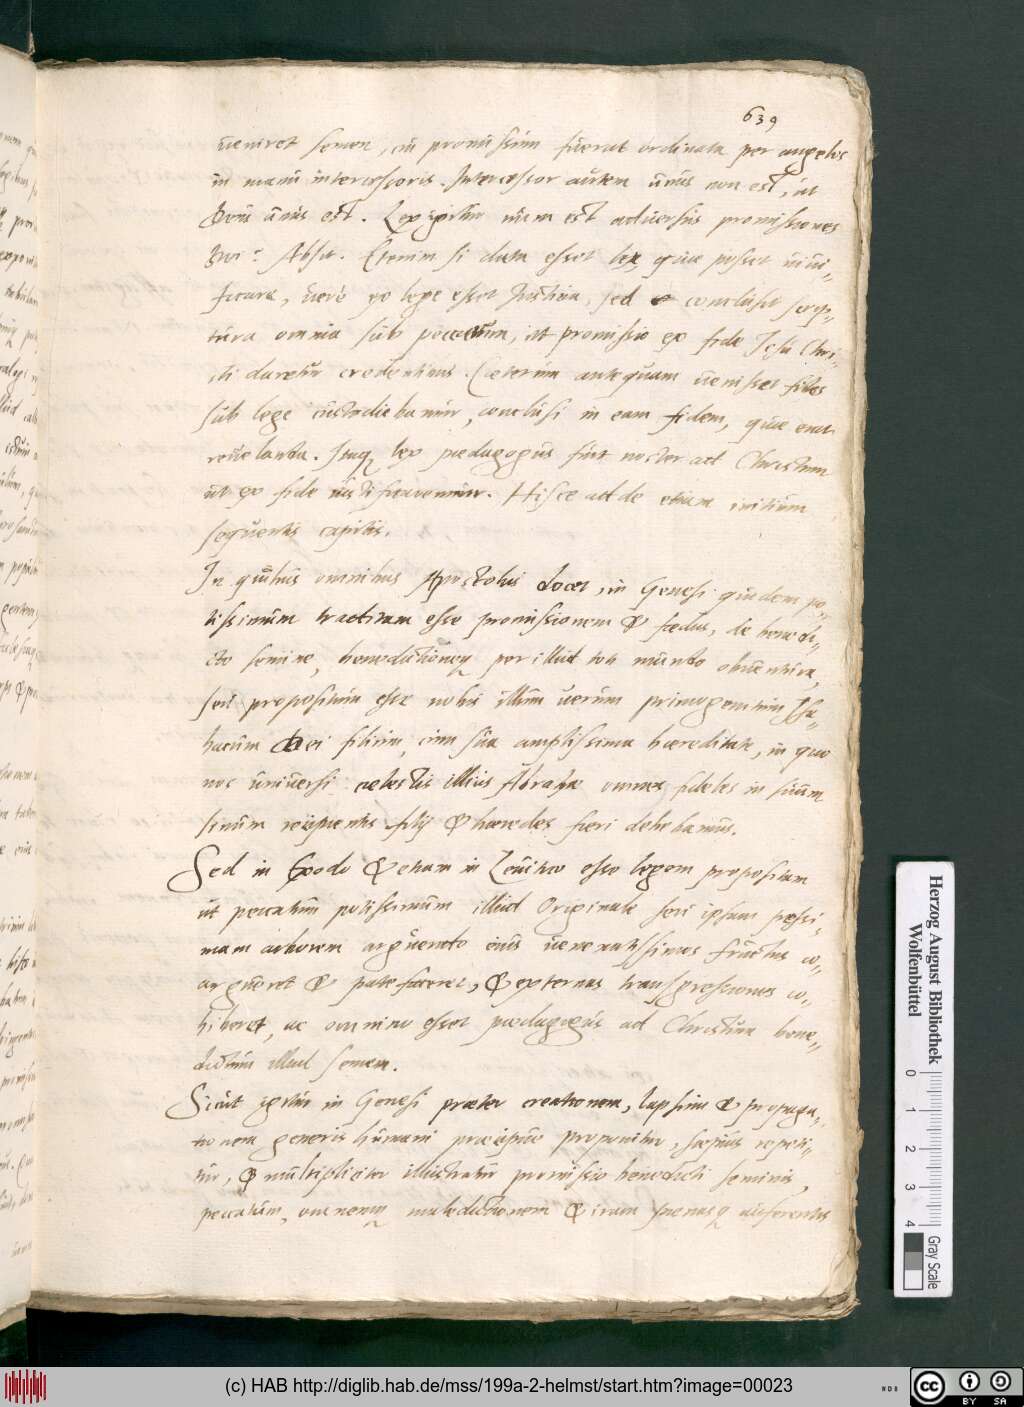 639
veniret semen, cui promissum fuerat ordinata per angelos
in manu intercessoris. Intercessor autem unius non est, at
Deus unus est. Lex igitur num est adversus promissiones
Dei? Absit. Etenim si data esset lex quae posset vivi=
ficare, verè ex lege esset Justitia, sed conclusit scrip=
tura omnia sub peccatum, ut promissio ex fide Jesu Chri=
sti daretur credentibus. Caeterum antequam venisset fides
sub lege custodiebamur, conclusi in eam fidem, quae erat
revelanda. Itaq lex paedagogus fuit noster ad Christum
ut ex fide iustificaremur. Hisce adde etiam initium
sequentis capitis.
In quibus omnibus Apostolus docet, in Genesi quidem po=
tissimum tractatam esse promissionem & foedus, de benedi=
cto semine, benedictioneq per illud toti mundo obventura,
seu propositum esse nobis illum verum primogenitum Isa=
hacum Dei filium, cum sua amplissima haereditate, in quo
nos universi celestis illius Abrahae omnes fideles in suum
sinum recipientis filij & haeredes fieri debebamus.
Sed in Exodo & etiam in Levitico esse legem propositam
ut peccatum potissimum illud Originale seu ipsam pessi=
mam arborem arguendo eius venenatissimos fructus co=
argueret & patefaceret, & externas transgressiones co=
hiberet, ac omnino esset paedagogus ad Christum bene=
dictum illud semen.
Sicut igitur in Genesi praeter creationem, lapsum & propaga=
tionem generis humani praecipue proponitur, saepius repeti=
tur, & multipliciter illustratur promissio benedicti seminis,
peccatum, omnemq maledictionem & iram poenasq auferentis
Herzog August Bibliothek
Wolfenbüttel
0 1 2 3 4
Gray Scale
(c) HAB http://diglib.hab.de/mss/199a-2-helmst/start.htm?image=00023
cc BY SA